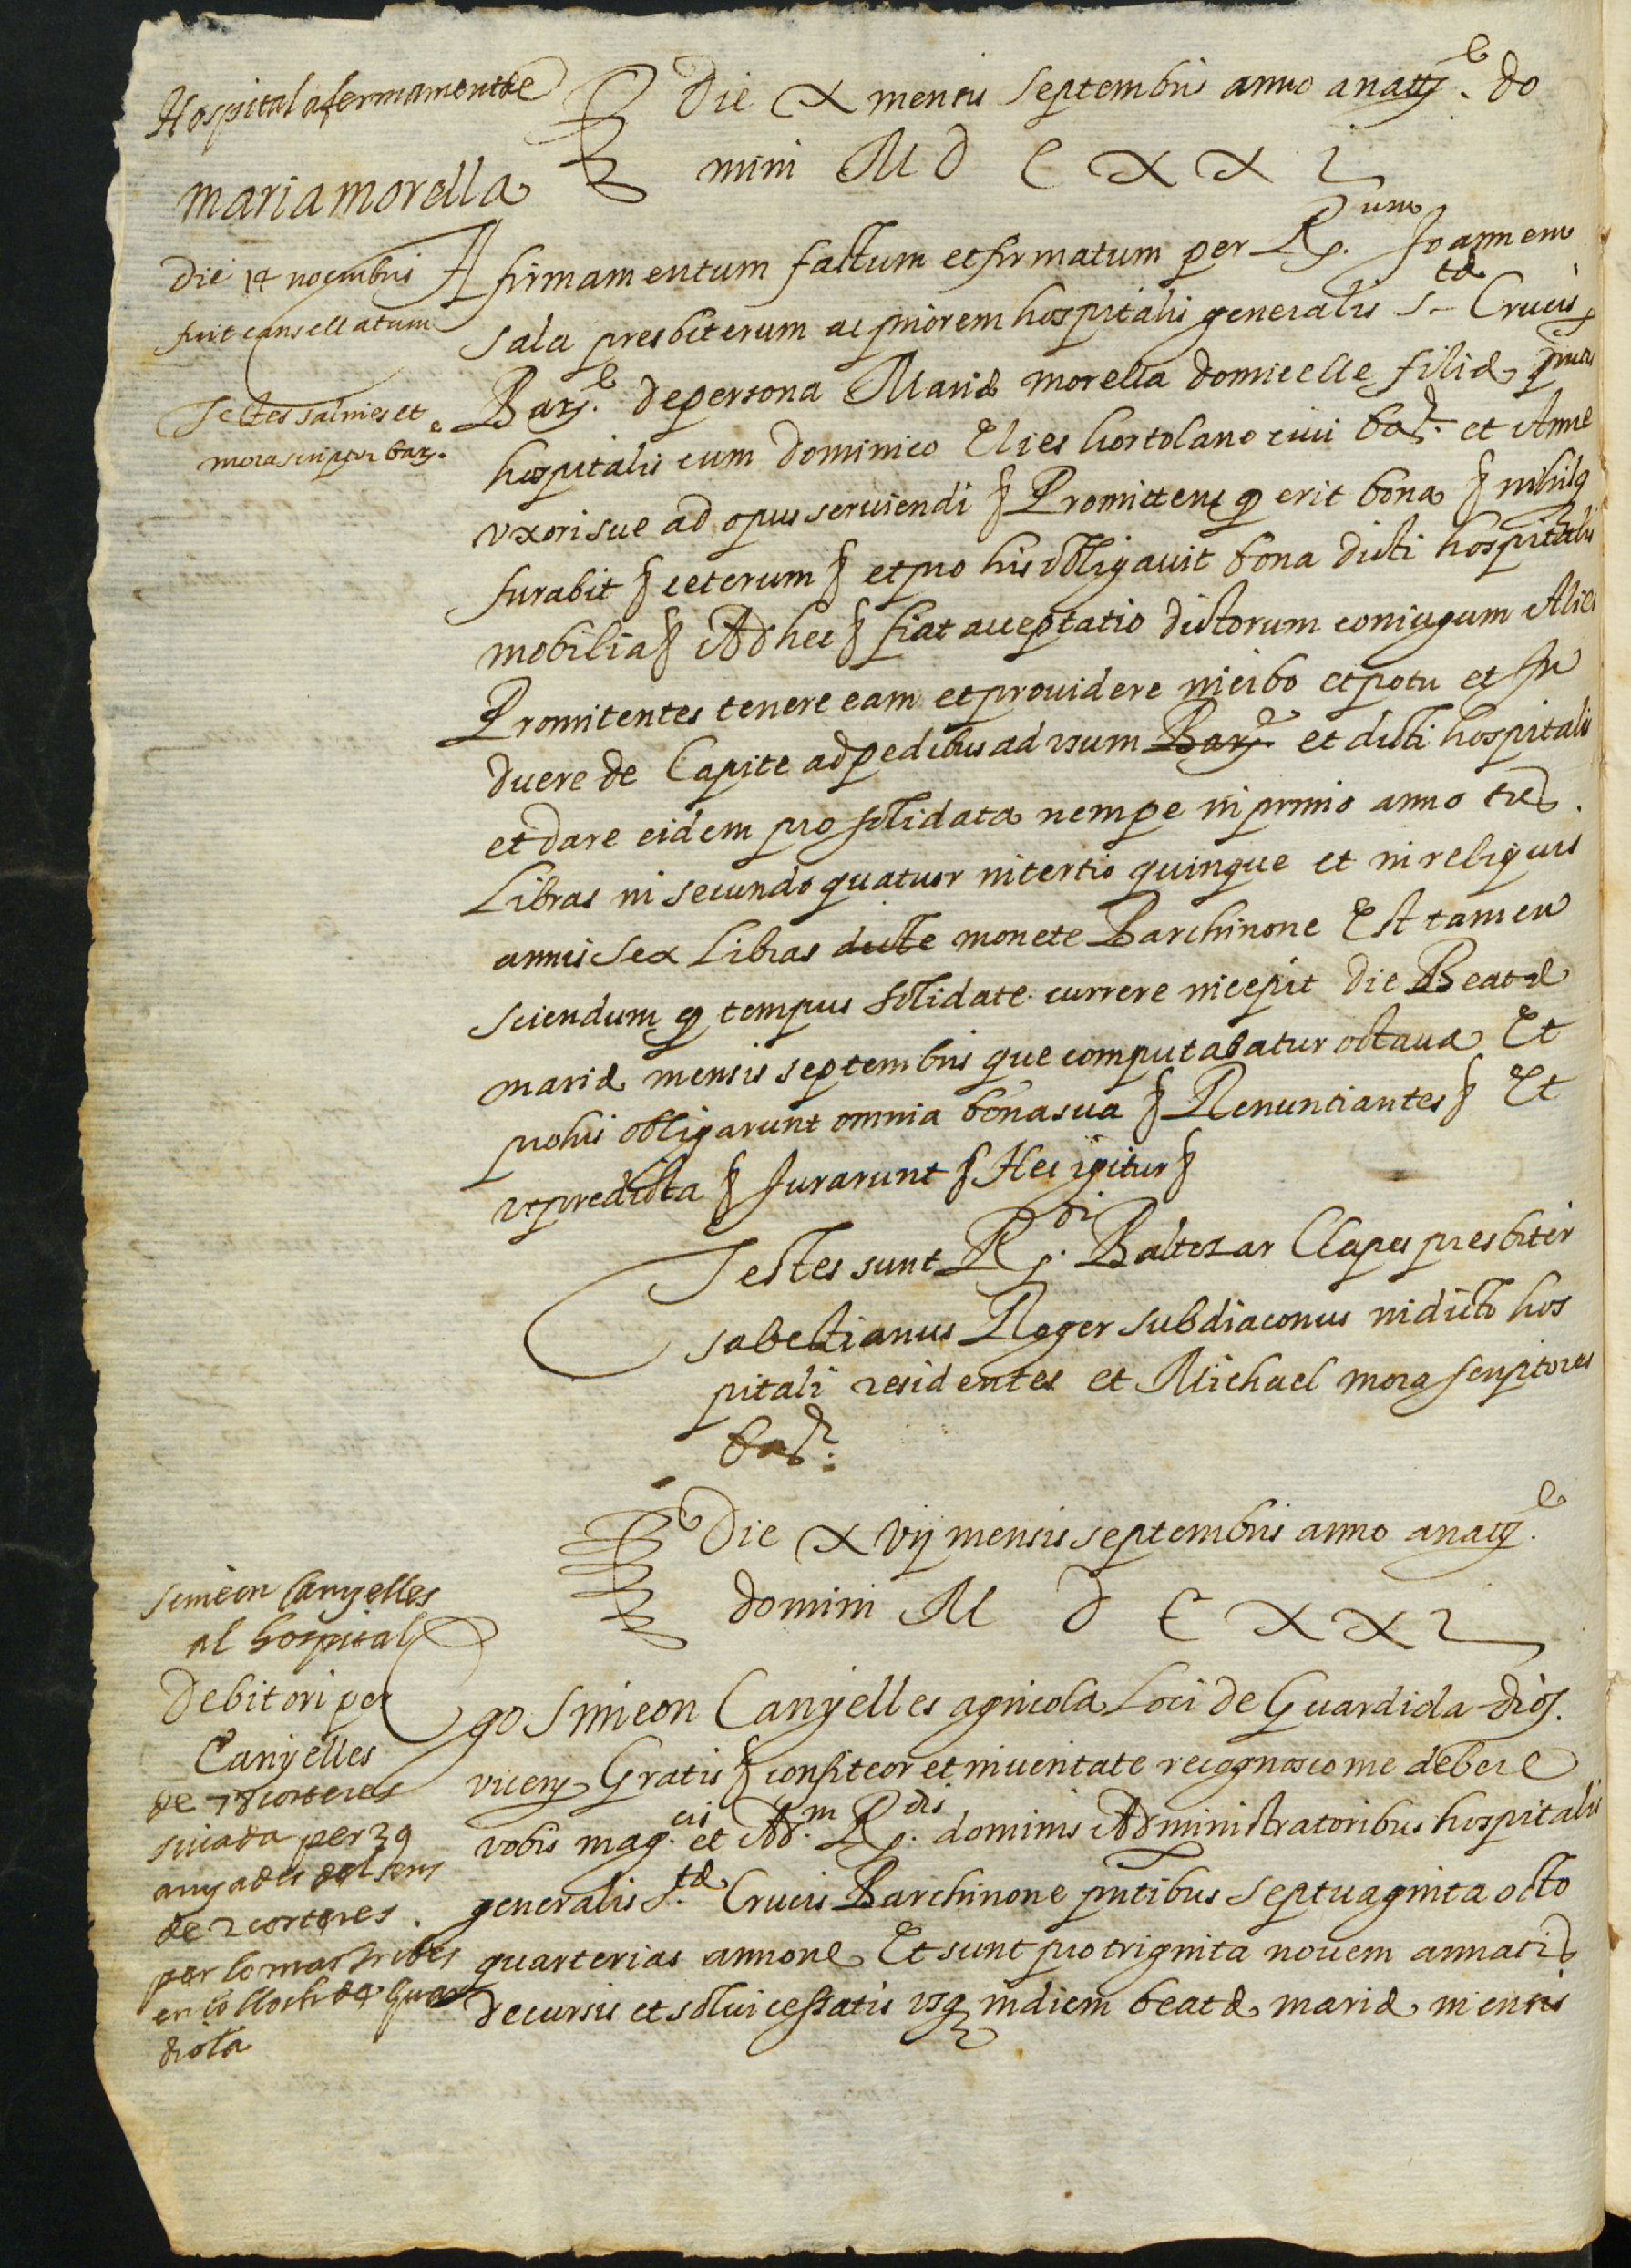 Hospital afermament de
maria morella
Die 14 nouembris
fuit cansellatum
Testes salnies et
mora scriptor barne.
Die X mensis septembris anno a natte. do
mini M D C X X I
Affirmamentum factum et firmatum per Rdum. Joannem
sala presbiterum ac priorem hospitalis generalis Stæ Crucis
Barne. de persona Mariæ morella domicelle filiæ
hospitalis cum Dominico Elies hortolano ciui bar. et Anne
vxori sue ad opus seruiendi § Promittens q erit bona § nihilq
furabit § ceterum § et pro his obligauit bona dicti hospitalis
mobilia § Ad hec § fiat acceptatio dictorum coniugum Alies
Promitentes tenere eam et prouidere in cibo et potu et In
duere de Capite ad pedibus ad vsum Barne et dicti hospitalis
et dare eidem pro solidata nempe in primo anno tres.
Libras in secundo quatuor in tertio quinque et in reliquis
annis sex Libras dicte monete Barchinone Est tamen
sciendum q tempus solidate currere incepit die Beatæ
mariæ mensis septembris que computabatur octaua Et
pro his obligarunt omnia bona sua § Renuntiantes § Et
vt predicta § Jurarunt § Hec igitur §
Testes sunt Rdi. Baltezar Clapes presbiter
sabestianus Roger subdiaconus in dicto hos
pitali residentes et Michael mora scriptores
bar.
Die X Vij mensis septembris anno a natte.
domini M D C X X I
Simeon Canyelles
al hospital
Debitori per
Canyelles
de 78 corteres
siuada per 39
anyades del sens
de 2 corteres.
per lo mas tribes
en lo lloch de Guar
diola
Ego Simeon Canyelles agricola Loci de Guardiola dios.
vicens Gratis § confiteor et in ueritate recognosco me debere
vobis mag.cis et Ad.m Rdis. dominis Administratoribus hospitalis
generalis S.tæ Crucis Barchinone pntibus septuaginta octo
quarterias annone Et sunt pro triginta nouem annatis
decursis et solui cessatis vsq in diem beatæ mariæ mensis